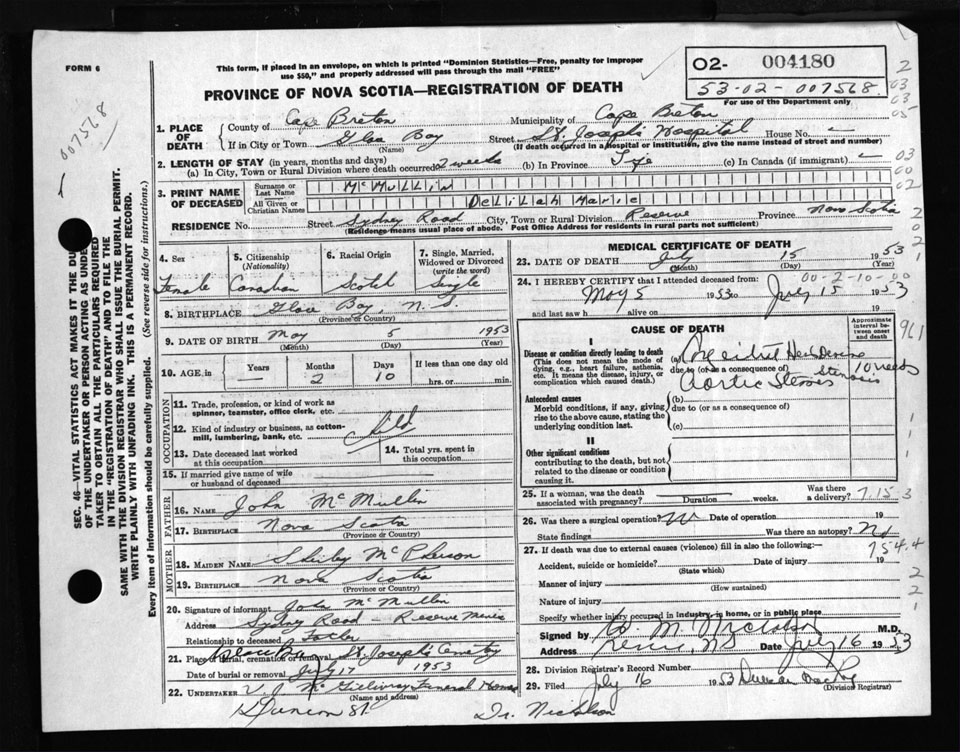 FORM 6
This form, if placed in an envelope, on which is printed "Dominion Statistics—Free, penalty for improper
use $50," and properly addressed will pass through the mail "FREE"
O2- 004180
53-02-007568
For use of the Department only
007568
PROVINCE OF NOVA SCOTIA—REGISTRATION OF DEATH
1. PLACE OF DEATH
County of Cape Breton Municipality of Cape Breton
If in City or Town Glace Bay Street St. Joseph's Hospital House No. –
(Name) (If death occurred in a hospital or institution, give the name instead of street and number)
2. LENGTH OF STAY (in years, months and days)
(a) In City, Town or Rural Division where death occurred 2 weeks (b) In Province Life (c) In Canada (if immigrant) –
3. PRINT NAME OF DECEASED
Surname or Last Name McMullin
All Given or Christian Names Delilah Marie
RESIDENCE No. Street Sydney Road City, Town or Rural Division Reserve Province Nova Scotia
(Residence means usual place of abode. Post Office Address for residents in rural parts not sufficient)
4. Sex Female
5. Citizenship (Nationality) Canadian
6. Racial Origin Scotch
7. Single, Married, Widowed or Divorced (write the word) Single
8. BIRTHPLACE Glace Bay, N.S.
(Province or Country)
9. DATE OF BIRTH May 5 1953
(Month) (Day) (Year)
10. AGE in Years – Months 2 Days 10 If less than one day old hrs. or min.
OCCUPATION
11. Trade, profession, or kind of work as spinner, teamster, office clerk, etc.
12. Kind of industry or business, as cotton-mill, lumbering, bank, etc.
13. Date deceased last worked at this occupation
14. Total yrs. spent in this occupation
15. If married give name of wife or husband of deceased
FATHER
16. NAME John McMullin
17. BIRTHPLACE Nova Scotia
(Province or Country)
MOTHER
18. MAIDEN NAME Shirley McPherson
19. BIRTHPLACE Nova Scotia
(Province or Country)
20. Signature of informant John McMullin
Address Sydney Road – Reserve Mines
Relationship to deceased Father
21. Place of burial, cremation or removal St. Joseph's Cemetery
Date of burial or removal July 17 1953
22. UNDERTAKER V. J. McGillivray Funeral Home
(Name and address)
MEDICAL CERTIFICATE OF DEATH
23. DATE OF DEATH July 15 1953
(Month) (Day) (Year)
00-2-10-00
24. I HEREBY CERTIFY that I attended deceased from:
May 5 1953 to July 15 1953
and last saw h alive on
CAUSE OF DEATH
Approximate interval between onset and death
I
Disease or condition directly leading to death
(This does not mean the mode of dying, e.g., heart failure, asthenia, etc. It means the disease, injury, or complication which caused death.)
(a) Heart Disease 10 weeks
due to (or as a consequence of) Stenosis
Aortic Stenosis
Antecedent causes
Morbid conditions, if any, giving rise to the above cause, stating the underlying condition last.
(b)
due to (or as a consequence of)
(c)
II
Other significant conditions
contributing to the death, but not related to the disease or condition causing it.
25. If a woman, was the death associated with pregnancy? Duration weeks. Was there a delivery?
7.15.3
26. Was there a surgical operation? No Date of operation 19
State findings Was there an autopsy? No
27. If death was due to external causes (violence) fill in also the following:—
754.4
Accident, suicide or homicide? Date of injury 19
(State which)
Manner of injury
(How sustained)
Nature of injury
Specify whether injury occurred in industry, in home, or in public place
Signed by M.D.
Address Reserve, NS Date July 16 1953
28. Division Registrar's Record Number
29. Filed July 16 1953 Duncan
(Division Registrar)
Dr. Nicholson
SEC. 46—VITAL STATISTICS ACT MAKES IT THE DUTY
OF THE UNDERTAKER OR PERSON ACTING AS UNDER-
TAKER TO OBTAIN ALL THE PARTICULARS REQUIRED
IN THE "REGISTRATION OF DEATH" AND TO FILE THE
SAME WITH THE DIVISION REGISTRAR WHO SHALL ISSUE THE BURIAL PERMIT.
WRITE PLAINLY WITH UNFADING INK. THIS IS A PERMANENT RECORD.
Every item of information should be carefully supplied. (See reverse side for instructions.)